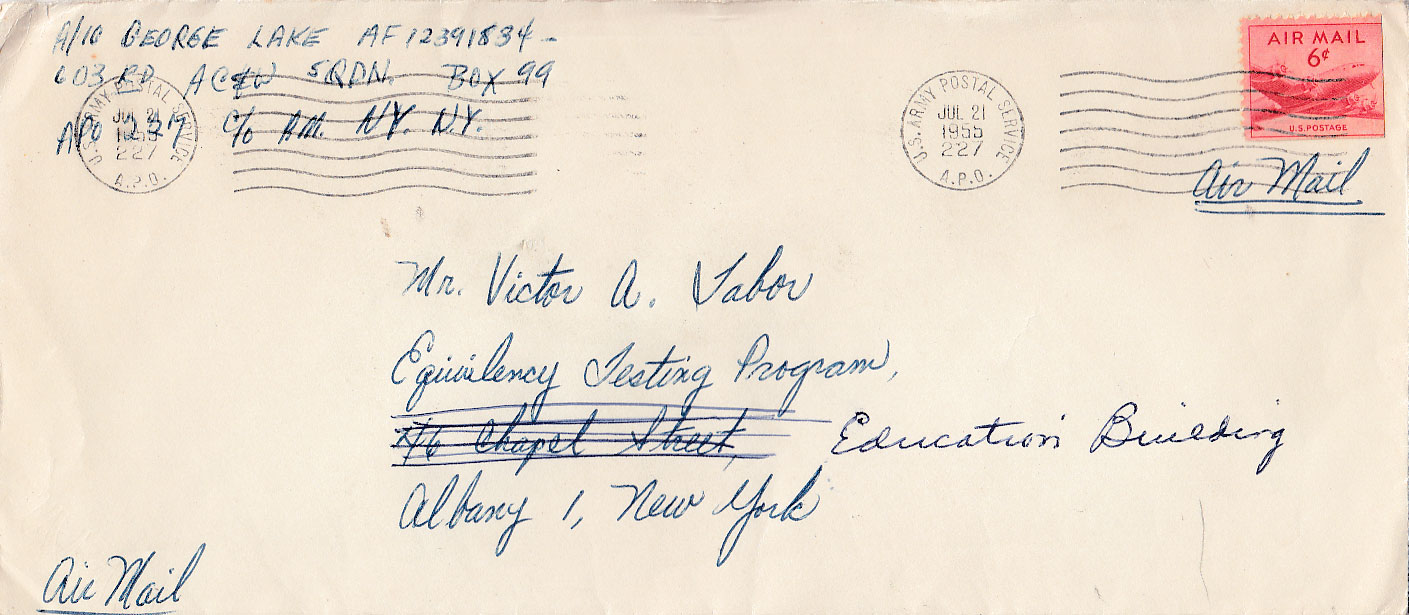 A/1C GEORGE LAKE AF 12391834 -
603 RD AC&W SQDN. BOX 99
APO 227 c/o P.M. NY. N.Y.
U.S. ARMY POSTAL SERVICE
JUL 21
1955
227
A.P.O.
U.S. ARMY POSTAL SERVICE
JUL 21
1955
227
A.P.O.
AIR MAIL
6¢
U.S. POSTAGE
Air Mail
Mr. Victor A. Tabor
Equivilency Testing Program,
Chapel Street, Education Building
Albany 1, New York
Air Mail